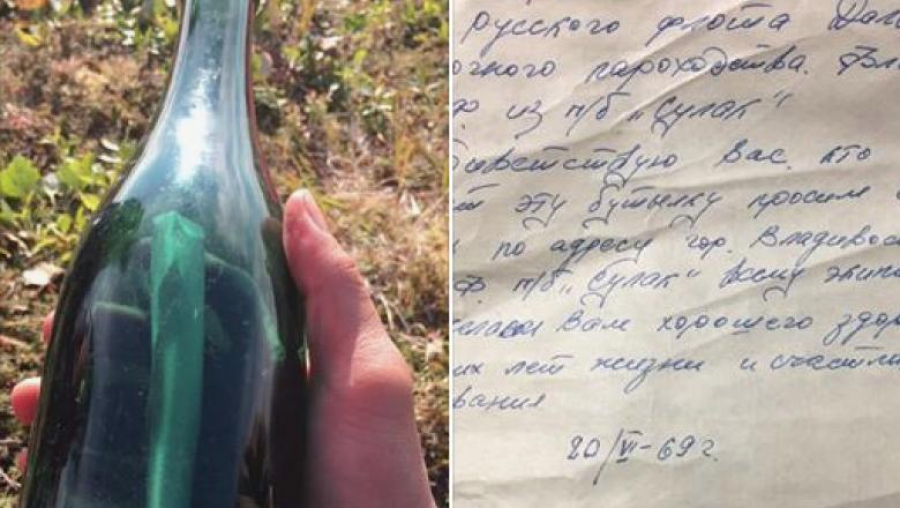 Русского флота Дал
очного пароходства. Вл
из п/б "Сулак"
ветствую Вас, кто
эту бутылку просим
по адресу гор. Владивос
п/б "Сулак" всему экип
елаем Вам хорошего здор
их лет жизни и счастли
вания
20/VI-69 г.